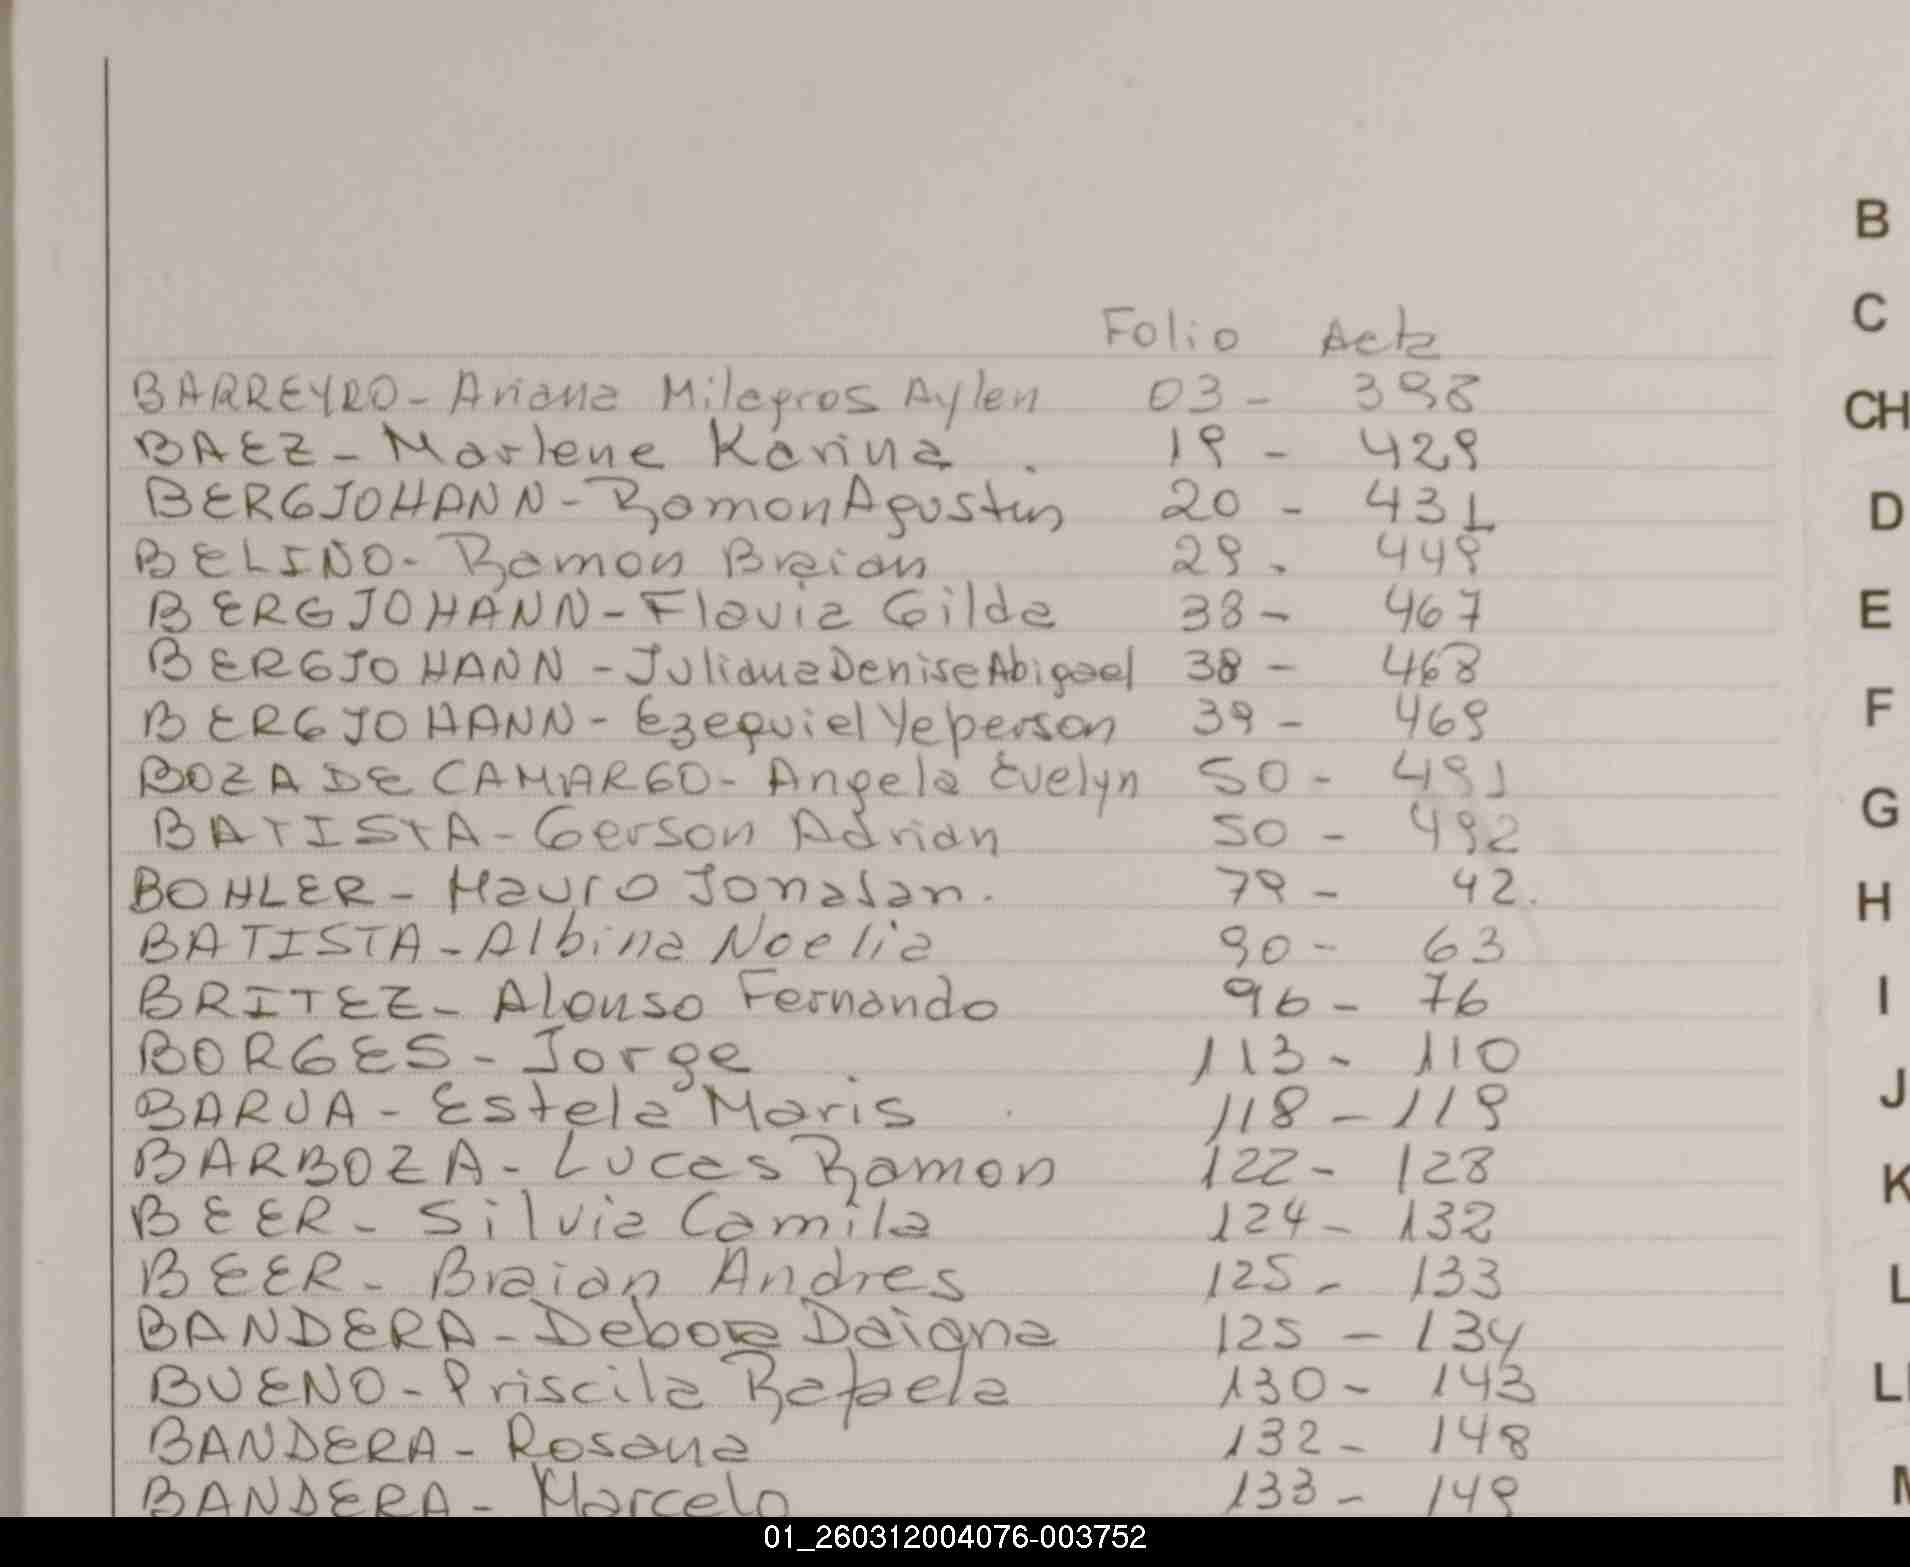 Folio Acta
BARREYRO - Ariana Milagros Aylen 03 - 398
BAEZ - Marlene Karina . 19 - 429
BERGJOHANN - Ramon Agustin 20 - 431
BELINO - Ramon Braian 29 . 449
BERGJOHANN - Flavia Gilda 38 - 467
BERGJOHANN - Juliana Denise Abigael 38 - 468
BERGJOHANN - Ezequiel Yeperson 39 - 469
BOZA DE CAMARGO - Angela Evelyn 50 - 491
BATISTA - Gerson Adrian 50 - 492
BOHLER - Mauro Jonatan. 79 - 42.
BATISTA - Albina Noelia 90 - 63
BRITEZ - Alonso Fernando 96 - 76
BORGES - Jorge 113 - 110
BARUA - Estela Maris 118 - 119
BARBOZA - Lucas Ramon 122 - 128
BEER - Silvia Camila 124 - 132
BEER - Braian Andres 125 - 133
BANDERA - Debora Daiana 125 - 134
BUENO - Priscila Rafaela 130 - 143
BANDERA - Rosana 132 - 148
BANDERA - Marcelo 133 - 149
B
C
CH
D
E
F
G
H
I
J
K
L
01_260312004076-003752